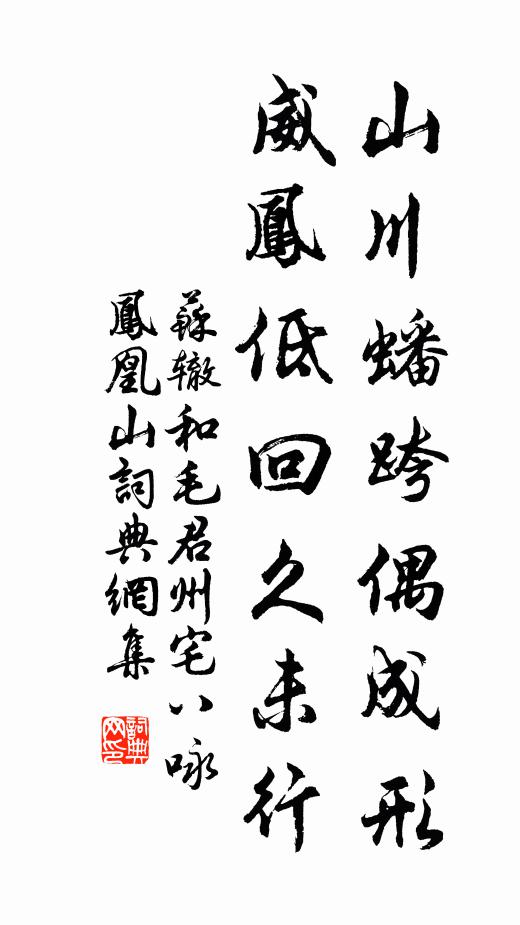 山川蟠跨偶成形
威鳳低回久未行
蘇轍和毛君州宅八咏
鳳凰山詞典網集
詞典网印